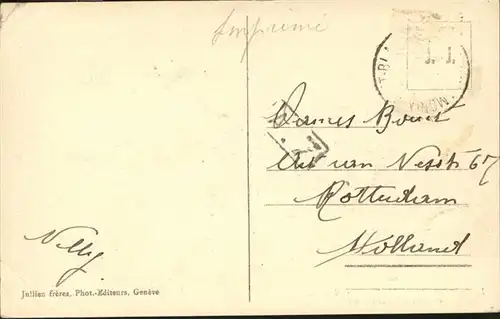 Imprimé
J. J.
Dames Bout
Aert van Nesstr 67
Rotterdam
Holland
Nelly
Jullien frères, Phot.-Editeurs, Genève